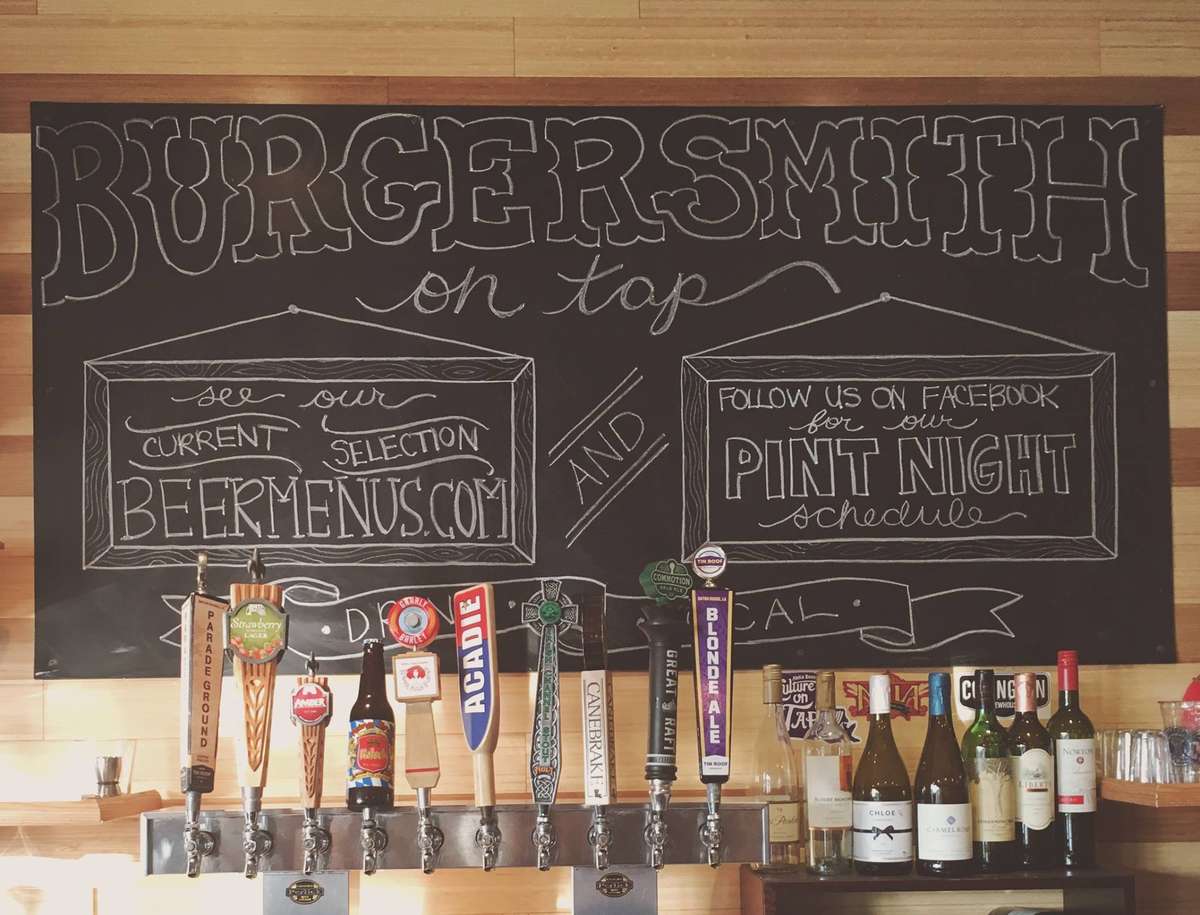 BURGERSMITH
on tap
see our
CURRENT SELECTION
BEERMENUS.COM
AND
FOLLOW US ON FACEBOOK
for our
PINT NIGHT
schedule
PARADE GROUND
Strawberry
LAGER
AMBER
GNARLY
BARLEY
ACADIE
CANEBRAKE
COMMOTION
GREAT RAFT
TIN ROOF
BLONDE ALE
TIN ROOF
Culture
on
TAP
NOLA
CHLOE
CARMEL ROAD
LIBERTY
NORTON